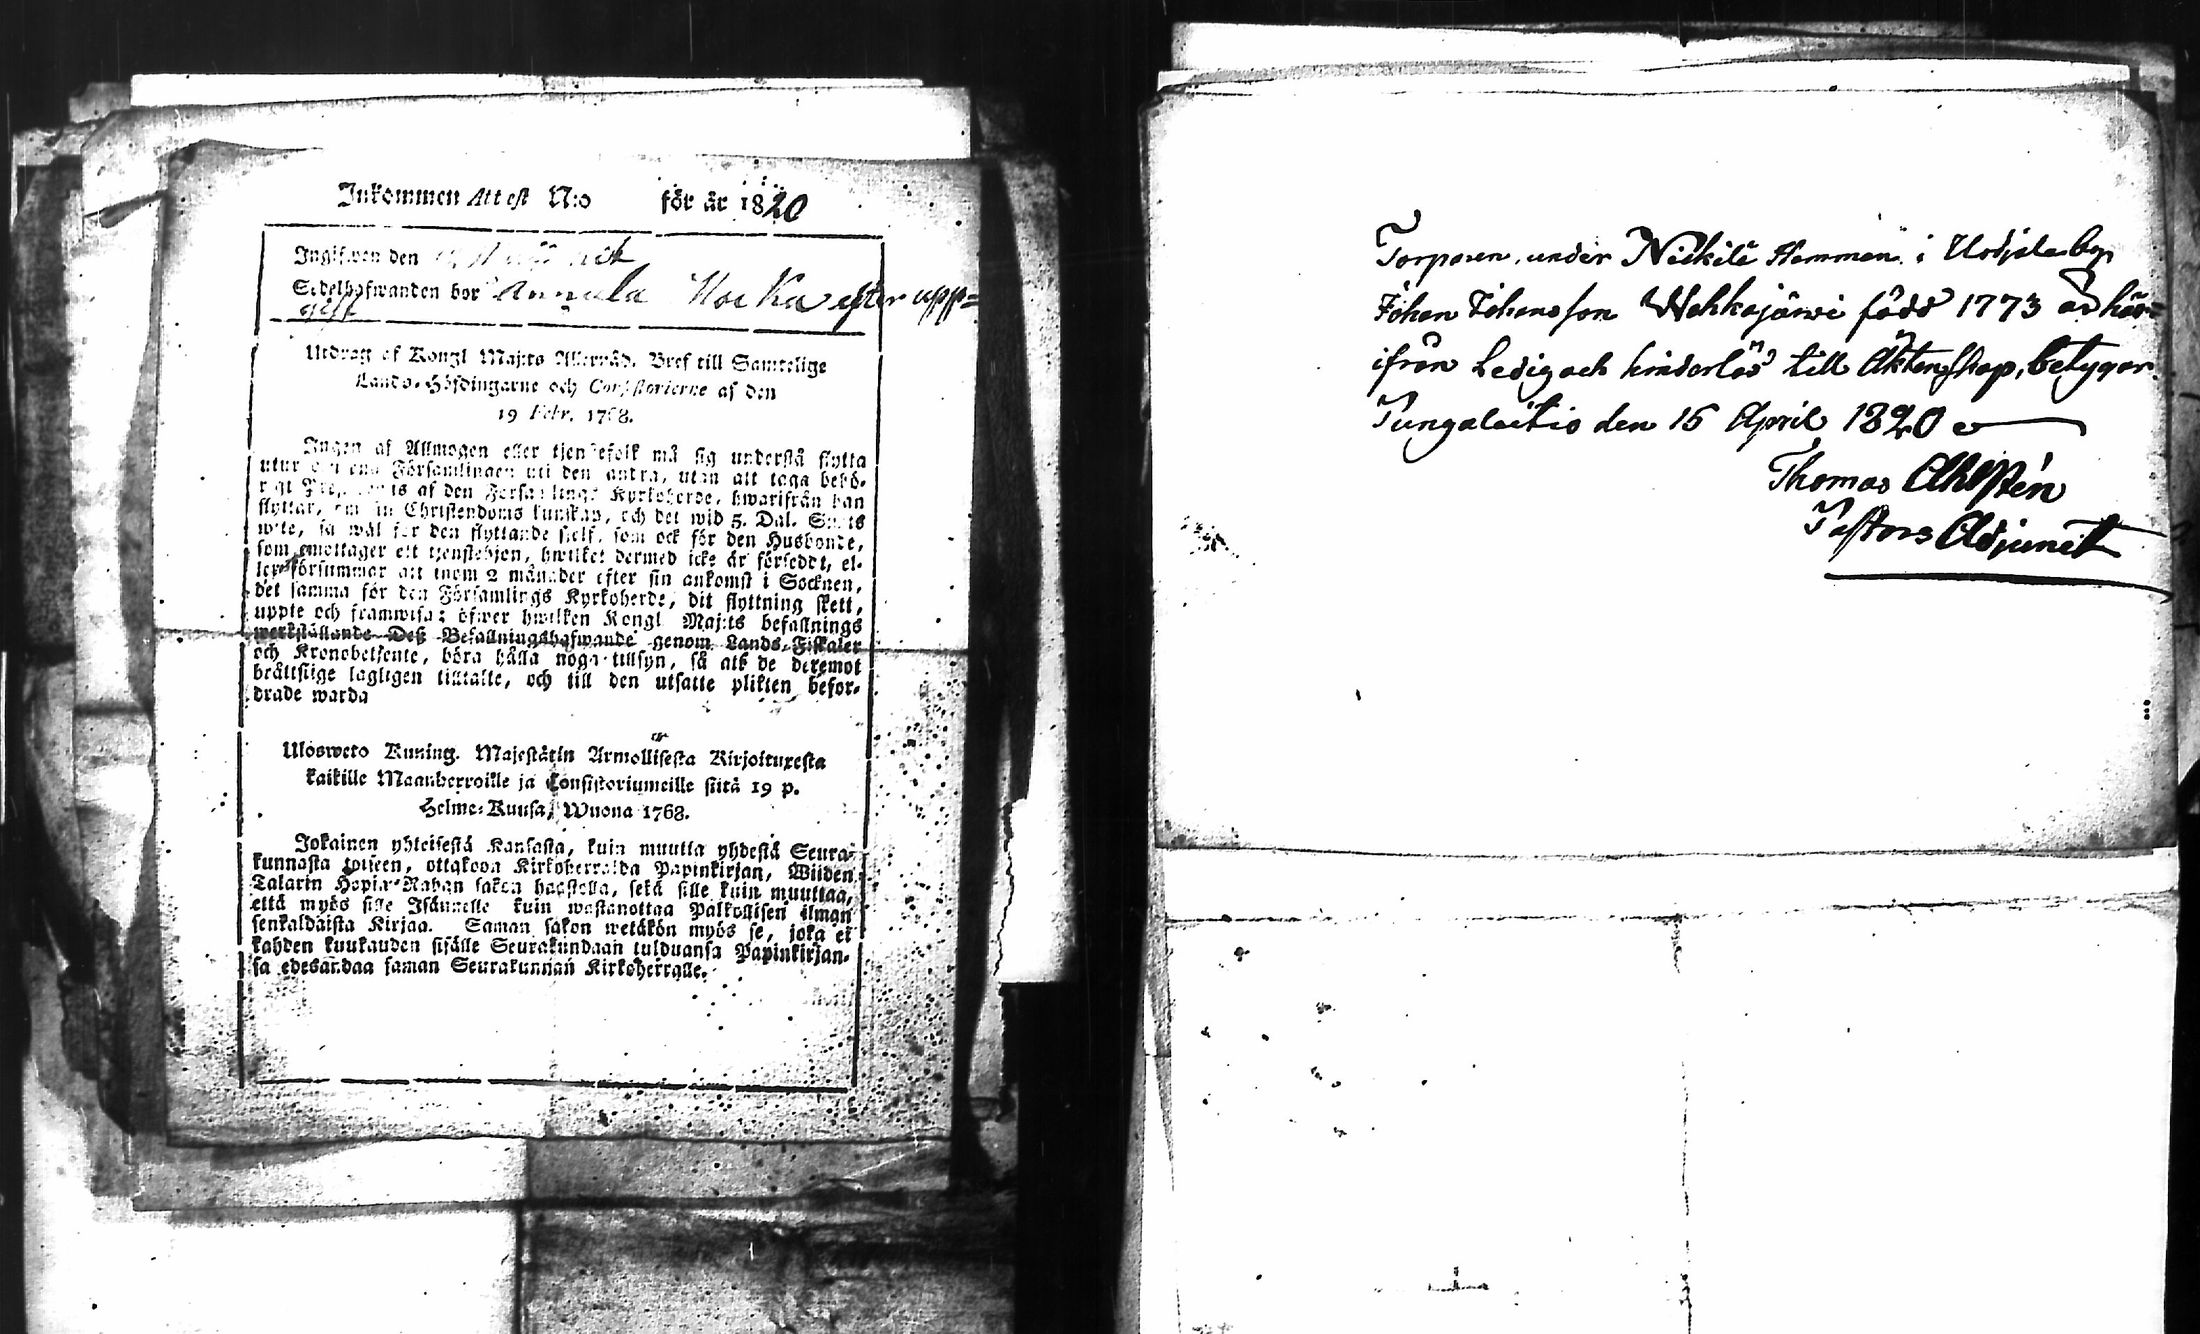 Inkommen Attest N:o för år 1820
Ingifwen den
Sedelhafwanden bor Annula efter upp=
gift
Utdrag af Kongl Maj:ts Allernåd. Bref till Samtelige
Lands-Höfdingarne och Consistorierne af den
19 Febr. 1768.
Ingen af Allmogen eller tjenstefolk må sig understå flytta
utur den ena Församlingen uti den andra, utan att taga behö-
rigt af den Församlings Kyrkoherde, hwarifrån han
flyttar, om sin Christendoms kunskap, och det wid 5. Dal. S:mts
wite, så wäl för den flyttande sjelf, som ock för den Husbonde,
som emottager ett tjenstehjon, hwilket dermed icke är försedt, el-
ler försummar att inom 2 månader efter sin ankomst i Socknen,
det samma för den Församlings Kyrkoherde, dit flyttning skett,
uppte och framwisa; öfwer hwilken Kongl Maj:ts befallnings
werkställande Deß Befallningshafwande genom Lands-Fiskaler
och Kronobetjente, böra hålla noga tillsyn, så att de deremot
bråttslige lagligen tilltalte, och till den utsatte plikten befor-
drade warda
Ulosweto Kuning. Majestätin Armollisesta Kirjoituxesta
kaikille Maanherroille ja Consistoriumeille siitä 19 p.
Helme-Kuusa, Wuona 1768.
Jokainen yhteisestä Kansasta, kuin muutta yhdestä Seura-
kunnasta toiseen, ottakoon Kirkoherralda Papinkirjan, Wiiden
Talarin Hopia-Rahan sakon haastolla, sekä sille kuin muuttaa,
että myös sille Isännelle kuin wastanottaa Palkollisen ilman
senkaldaista Kirjaa. Saman sakon wetäkön myös se, joka ei
kahden kuukauden sisälle Seurakundaan tulduansa Papinkirjan-
sa edesandaa saman Seurakunnan Kirkoherralle.
Torparen under Nickilä Hemman i Urdjala by
Johan Johansson Wahkajärwi född 1773 är här=
ifrån Ledig och hinderlös till Äktenskap, betygar
Pungalaitio den 15 April 1820
Thomas Ahlstén
Pastors Adjunct